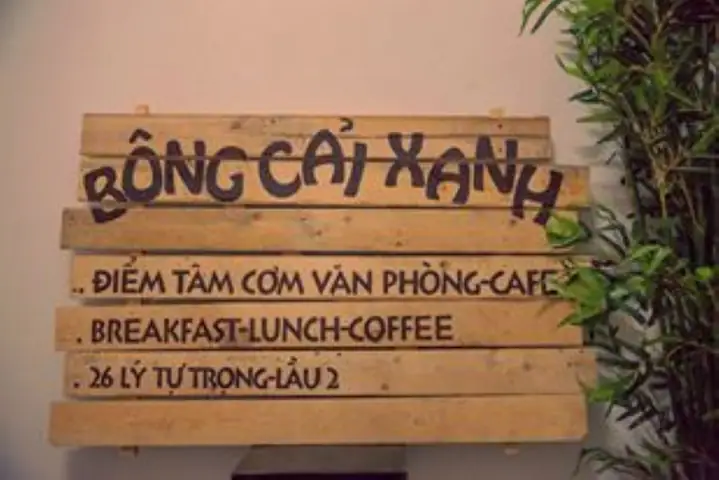 BÔNG CẢI XANH
. ĐIỂM TÂM CƠM VĂN PHÒNG-CAFE
. BREAKFAST-LUNCH-COFFEE
. 26 LÝ TỰ TRỌNG-LẦU 2